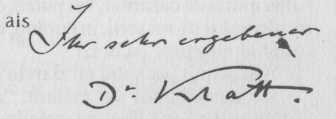 ais
Ihr sehr ergebener
Dr. Klatt.